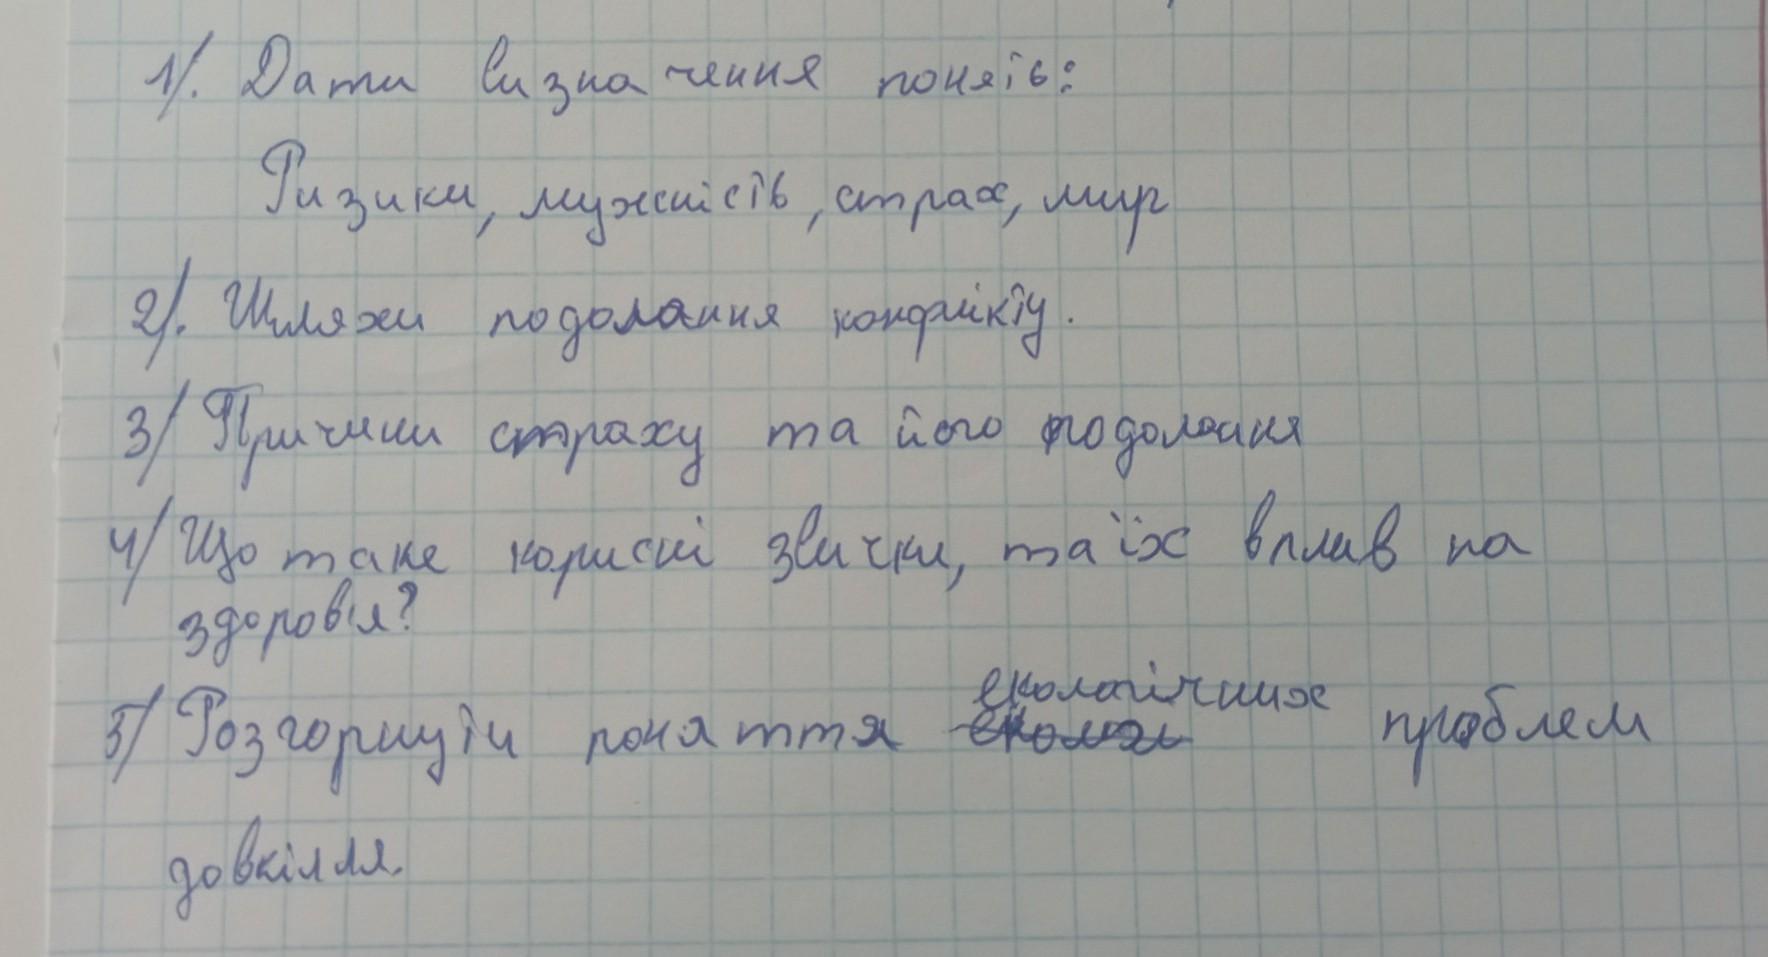 1/. Дати визначення понять:
Ризики, мужність, страх, мир
2/. Шляхи подолання конфлікту.
3/ Причини страху та його подолання
4/ Що таке корисні звички, та їх вплив на
здоров'я?
5/ Розгорнути поняття екологічних проблем
довкілля.